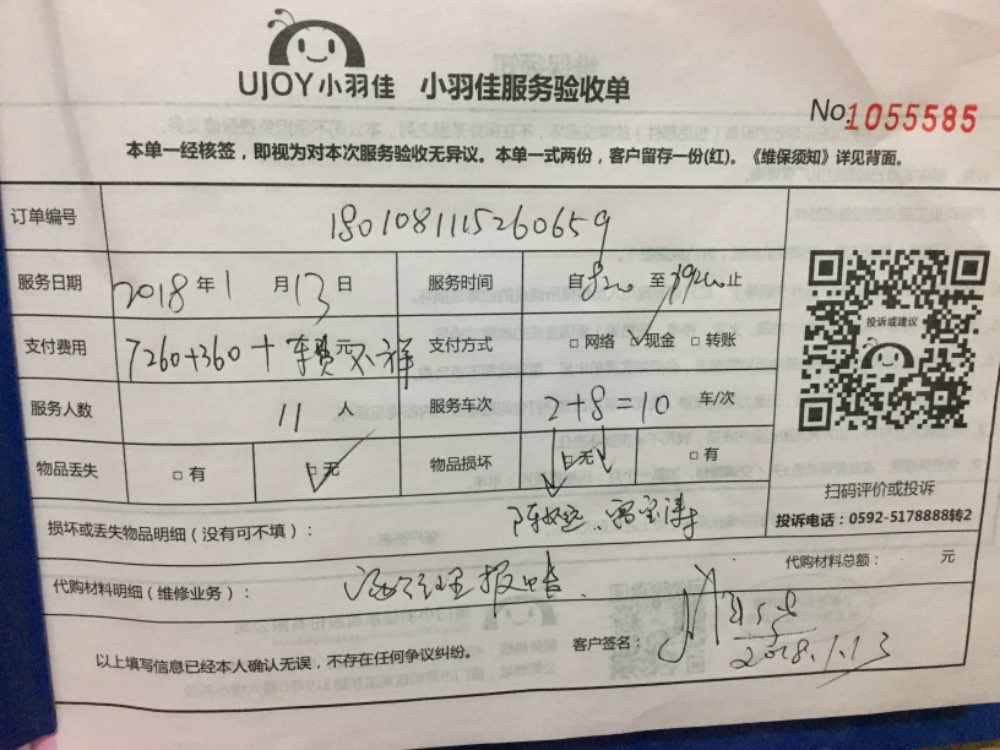 UJOY小羽佳 小羽佳服务验收单
No.1055585
本单一经核签，即视为对本次服务验收无异议。本单一式两份，客户留存一份(红)。《维保须知》详见背面。
订单编号 1801081115260659
服务日期 2018年1月13日 服务时间 自820至1920止
支付费用 7260+360+ 支付方式 □网络 ✓现金 □转账
服务人数 11人 服务车次 2+8=10 车/次
物品丢失 □有 □无 物品损坏 □无 □有
投诉或建议
扫码评价或投诉
投诉电话：0592-5178888转2
损坏或丢失物品明细（没有可不填）：
代购材料总额： 元
代购材料明细（维修业务）：
客户签名：
以上填写信息已经本人确认无误，不存在任何争议纠纷。
2018.1.13